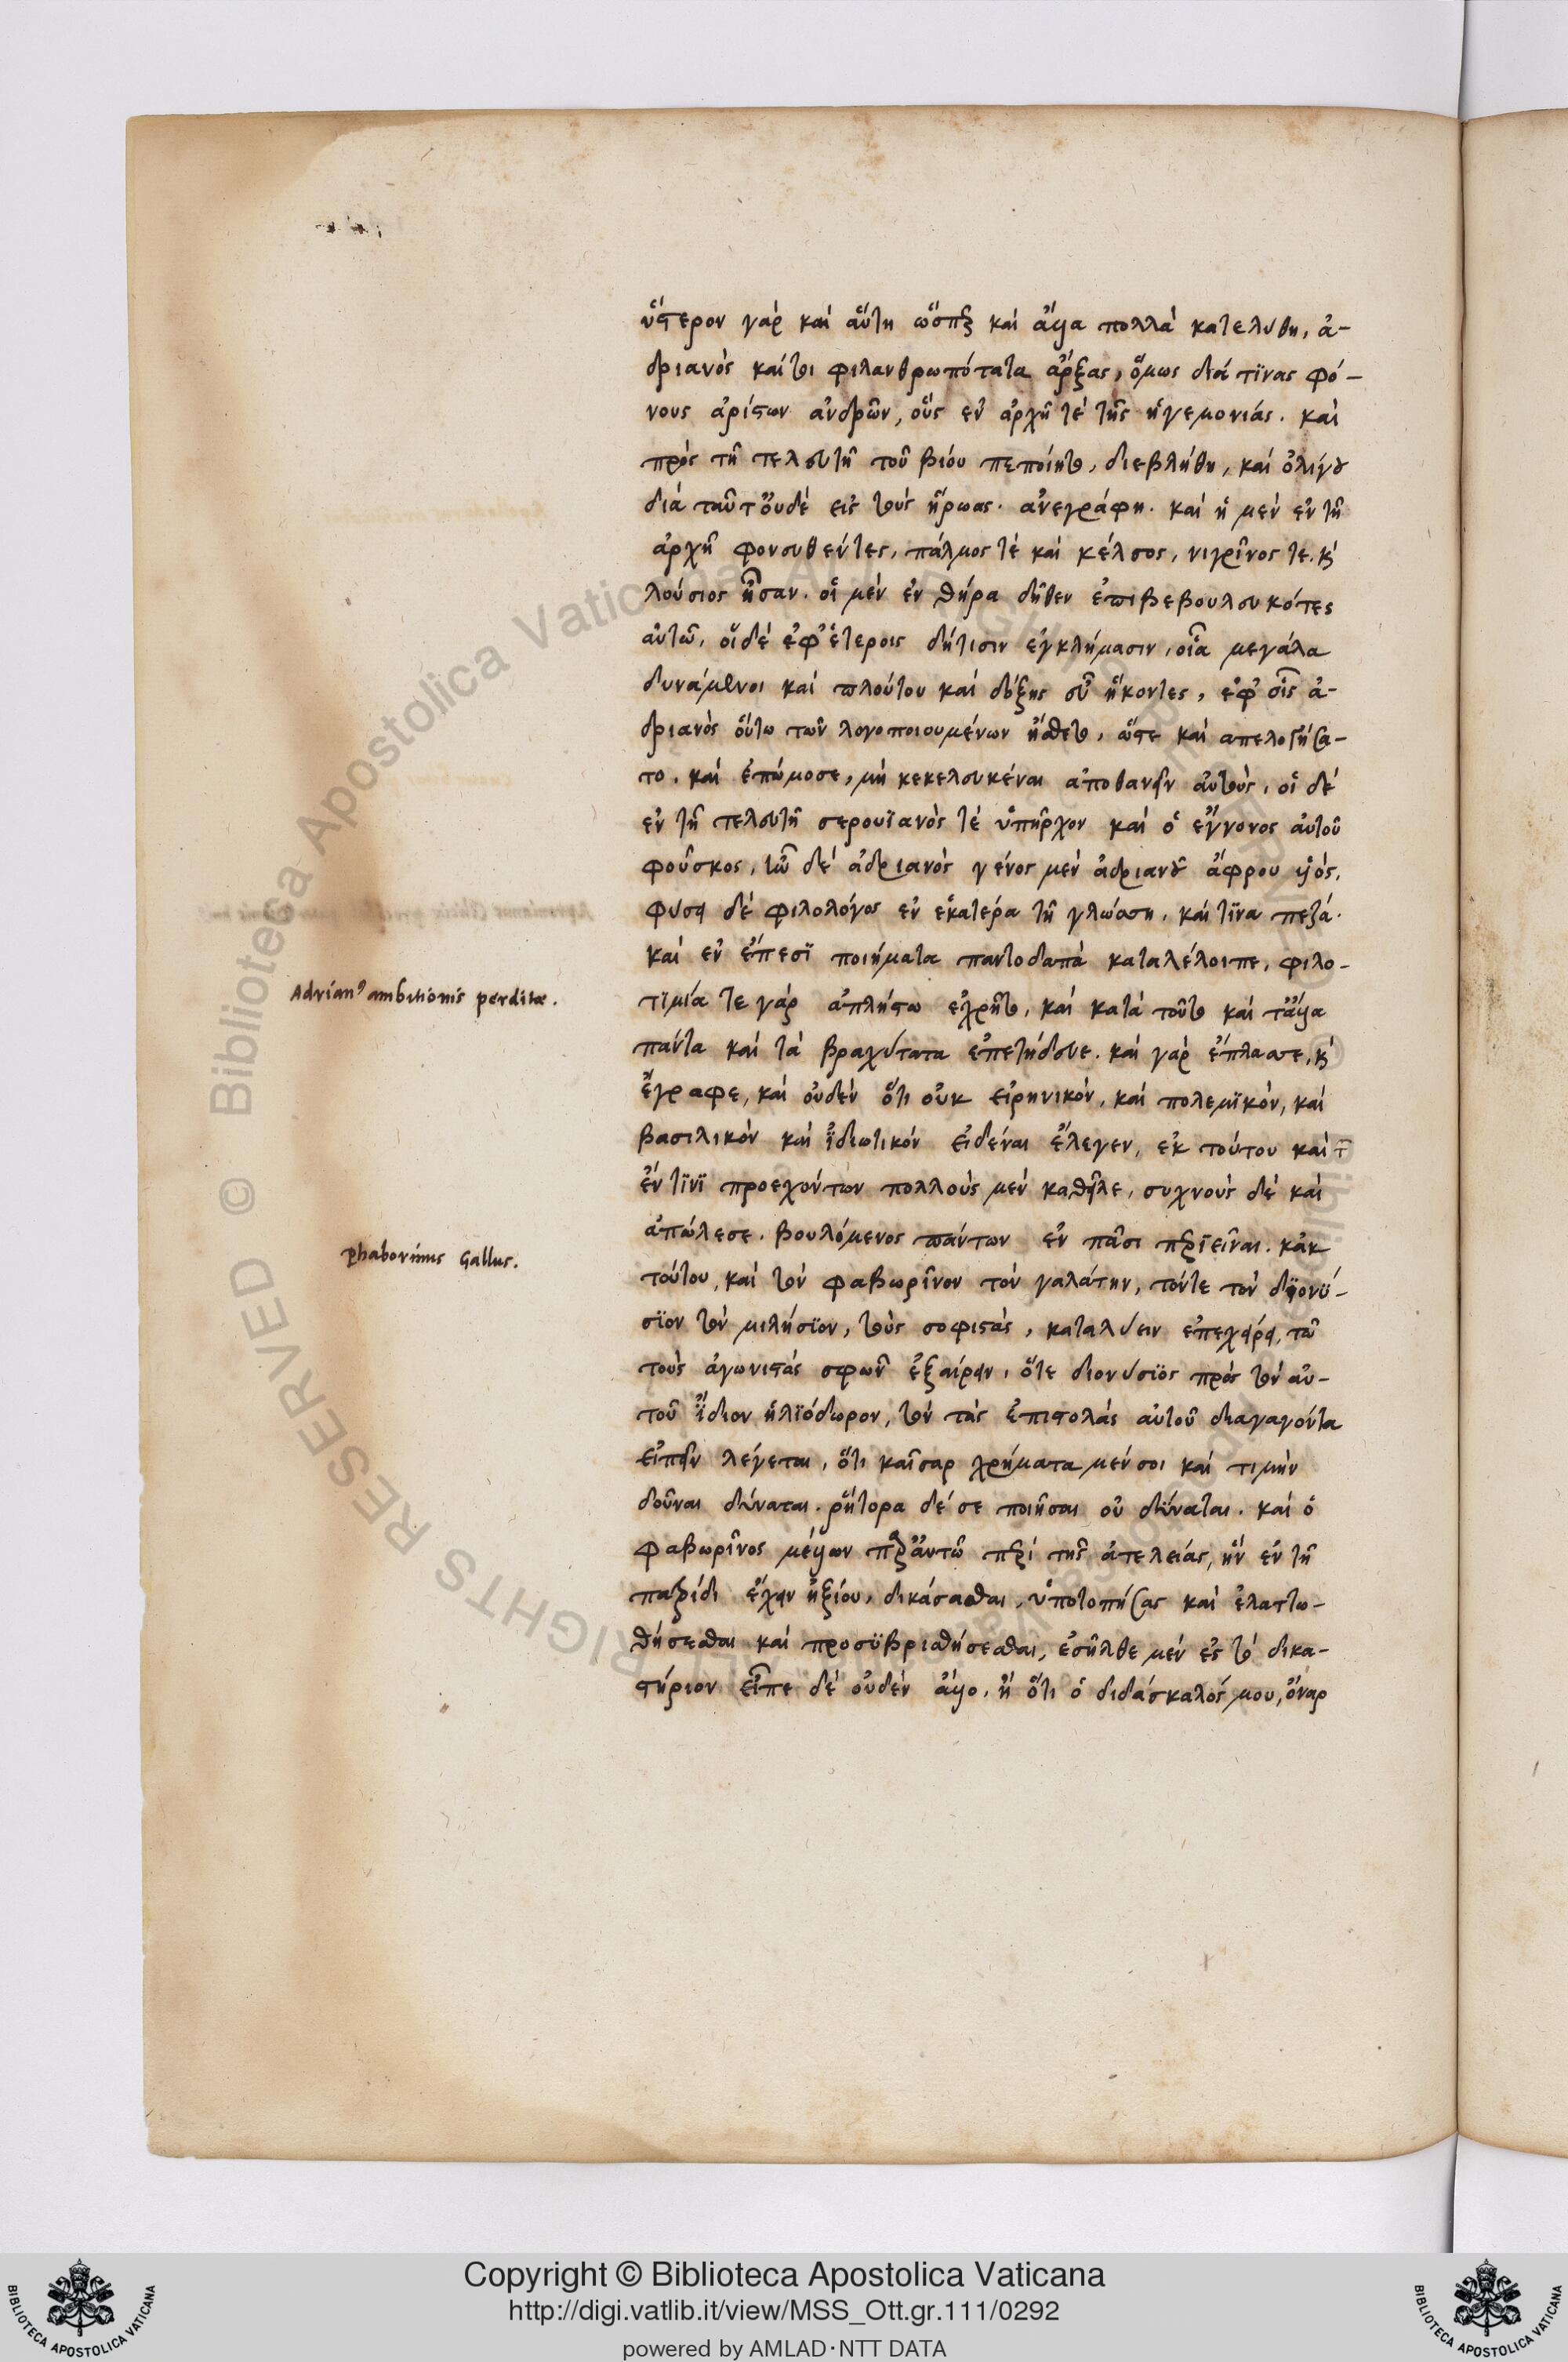 ὕστερον γὰρ καὶ αὕτη ὥσπερ καὶ ἄλλα πολλὰ κατελύθη, ἀ-
δριανὸς καίτοι φιλανθρωπότατα ἄρξας, ὅμως διά τϊνας φό-
νους ἀρίστων ἀνδρῶν, οὓς ἐν ἀρχῇ τὲ τῆς ἡγεμονιάς. καὶ
πρὸς τῇ τελευτῇ τοῦ βιόυ πεποίητο, διεβλήθη, καὶ ὀλίγου
διὰ ταῦτ οὐδὲ εἰς τοὺς ἥρωας. ἀνεγράφη. καὶ ἡ μὲν ἐν τῇ
ἀρχῇ φονευθέντες, πάλμος τὲ καὶ κέλσος, νιγρῖνος τε. καὶ
λούσιος ἦσαν. οἱ μὲν ἐν θήρα δῆθεν ἐπιβεβουλευκότες
αὐτῶ, οἱ δὲ ἐφ' ἑτεροις δήτισιν ἐγκλήμασιν, οἷα μεγάλα
δυνάμενοι καὶ πλούτου καὶ δόξης εὖ ἥκοντες, ἐφ' οἷς ἀ-
δριανὸς οὕτω τῶν λογοποιουμένων ἤσθετο, ὥστε καὶ απελογήσα-
το. καὶ ἐπώμοσε, μὴ κεκελευκέναι ἀποθανεῖν αὐτοὺς, οἱ δὲ
ἐν τῇ τελευτῇ σερουϊανὸς τὲ ὑπῆρχον καὶ ὁ ἔγγονος αὐτοῦ
φοῦσκος, ἦν δὲ ἀδριανὸς γένος μὲν ἀδριανοῦ ἄφρου υἱός,
φύσει δὲ φιλολόγος ἐν ἑκατέρα τῇ γλώσση, καὶ τϊνα πεζά.
καὶ ἐν ἔπεσϊ ποιήματα παντοδαπὰ καταλέλοιπε, φιλο-
τϊμία τε γὰρ ἀπλήστω ἐχρῆτο, καὶ κατὰ τοῦτο καὶ τἄλλα
πάντα καὶ τὰ βραχύτατα ἐπετήδευε. καὶ γὰρ ἔπλασσε, καὶ
ἔγραφε, καὶ οὐδὲν ὅτι οὐκ εἰρηνικὸν, καὶ πολεμϊκὸν, καὶ
βασιλικὸν καὶ ἰδιωτικόν εἰδέναι ἔλεγεν, ἐκ τούτου καὶ τ
ἔν τϊνϊ προεχόντων πολλοὺς μὲν καθεῖλε, συχνοὺς δὲ καὶ
ἀπώλεσε. βουλόμενος πάντων ἐν πᾶσι περιεῖναι. κἀκ
τούτου, καὶ τὸν φαβωρῖνον τὸν γαλάτην, τόντε τὸν διονύ-
σϊον τὸν μιλήσϊον, τοὺς σοφιστὰς, καταλύειν ἐπεχείρει, τῶ
τοὺς ἀγωνιστάς σφῶν ἐξαίρειν, ὅτε διονύσϊος πρὸς τὸν αὐ-
τοῦ ἴδιον ἡλϊόδωρον, τὸν τὰς ἐπιστολάς αὐτοῦ διαγαγόντα
εἰπεῖν λέγεται, ὅτι καῖσαρ χρήματα μέν σοι καὶ τιμὴν
δοῦναι δύναται. ῥήτορα δέ σε ποιῆσαι οὐ δύναται. καὶ ὁ
φαβωρῖνος μέλλων παρ' αὐτῶ περὶ τῆς ἀτελείας, ἣν ἐν τῇ
πατρίδι ἔχειν ἠξίου, δικάσασθαι, ὑποτοπήσας καὶ ἐλαττω-
θήσεσθαι καὶ προσϋβρισθήσεσθαι, ἐσῆλθε μὲν ἐς τὸ δικα-
στήριον εἶπε δὲ οὐδὲν ἄλλο, ἢ ὅτι ὁ διδάσκαλός μου, ὄναρ
Adrianus ambitionis perditæ.
Phaborinus Gallus.
Copyright © Biblioteca Apostolica Vaticana
http://digi.vatlib.it/view/MSS_Ott.gr.111/0292
powered by AMLAD·NTT DATA